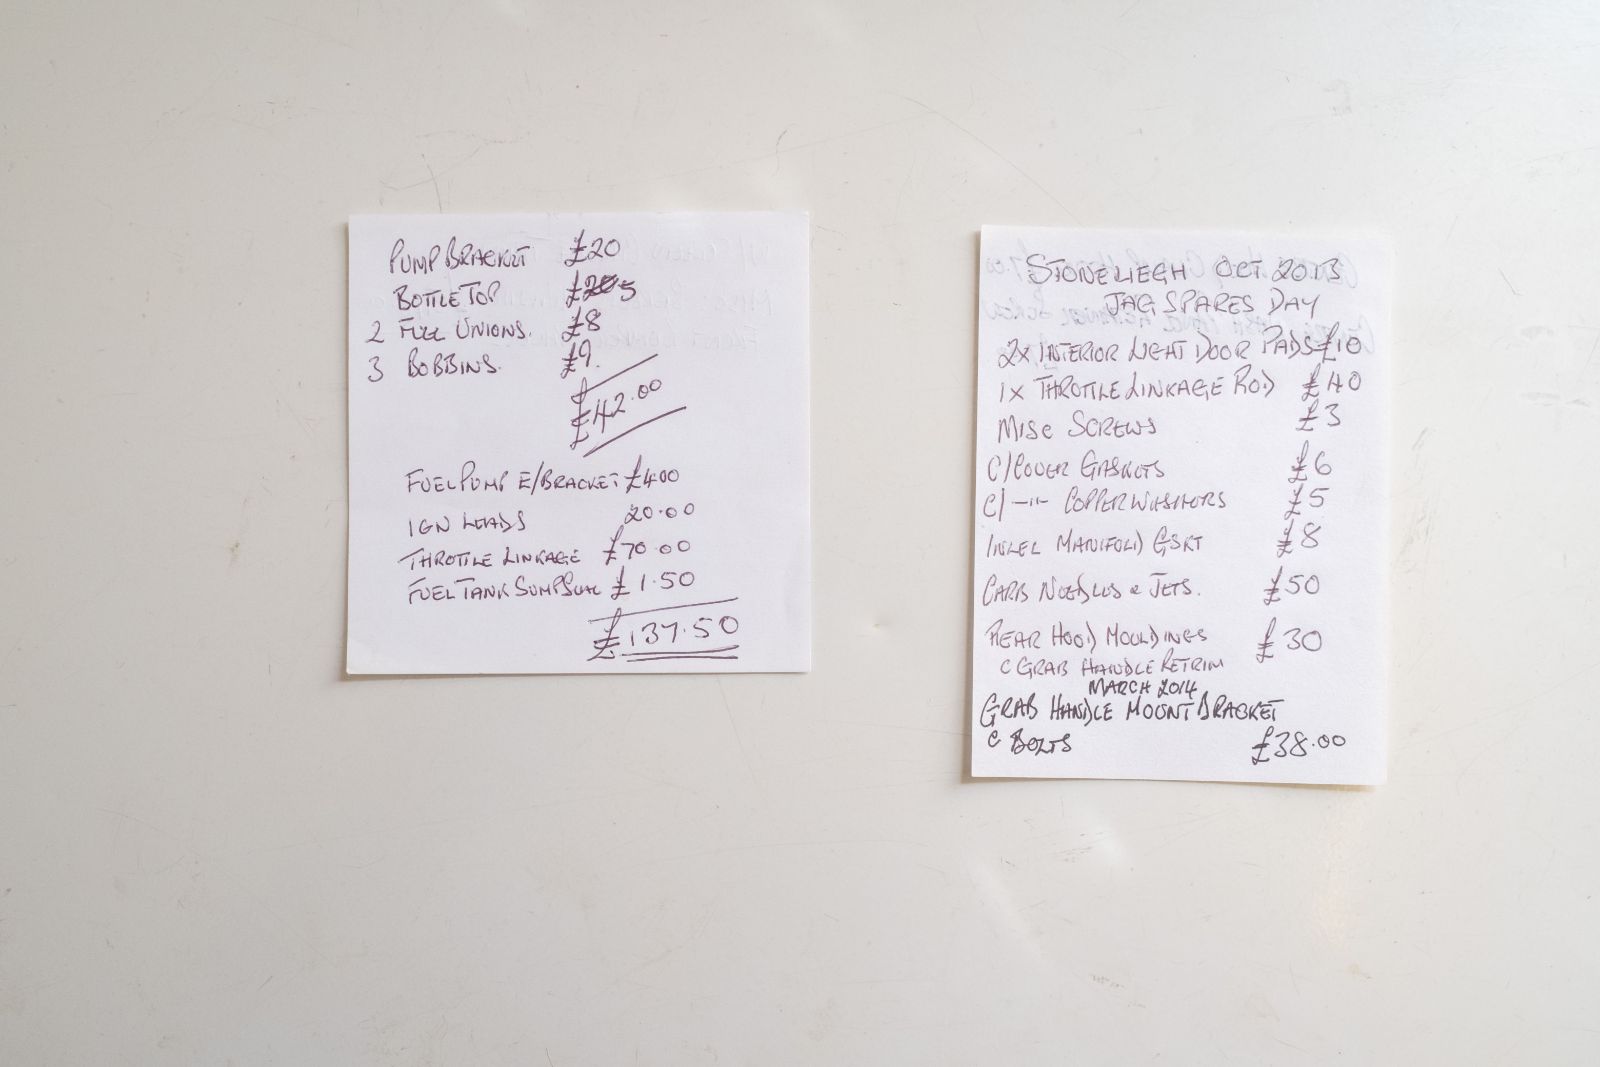 PUMP BRACKET £20
BOTTLE TOP £5
2 FUEL UNIONS. £8
3 BOBBINS. £9.
£42.00
FUEL PUMP E/BRACKET £400
IGN LEADS 20.00
THROTTLE LINKAGE £70.00
FUEL TANK SUMP SEAL £1.50
£137.50
STONELIEGH OCT 2013
JAG SPARES DAY
2x INTERIOR LIGHT DOOR PADS £10
1x THROTTLE LINKAGE ROD £40
MISC SCREWS £3
C/COVER GASKETS £6
C/ —"— COPPER WASHERS £5
INLET MANIFOLD GSKT £8
CARB NEEDLES & JETS. £50
REAR HOOD MOULDINGS £30
C GRAB HANDLE RETRIM
MARCH 2014
GRAB HANDLE MOUNT BRACKET
C BOLTS £38.00